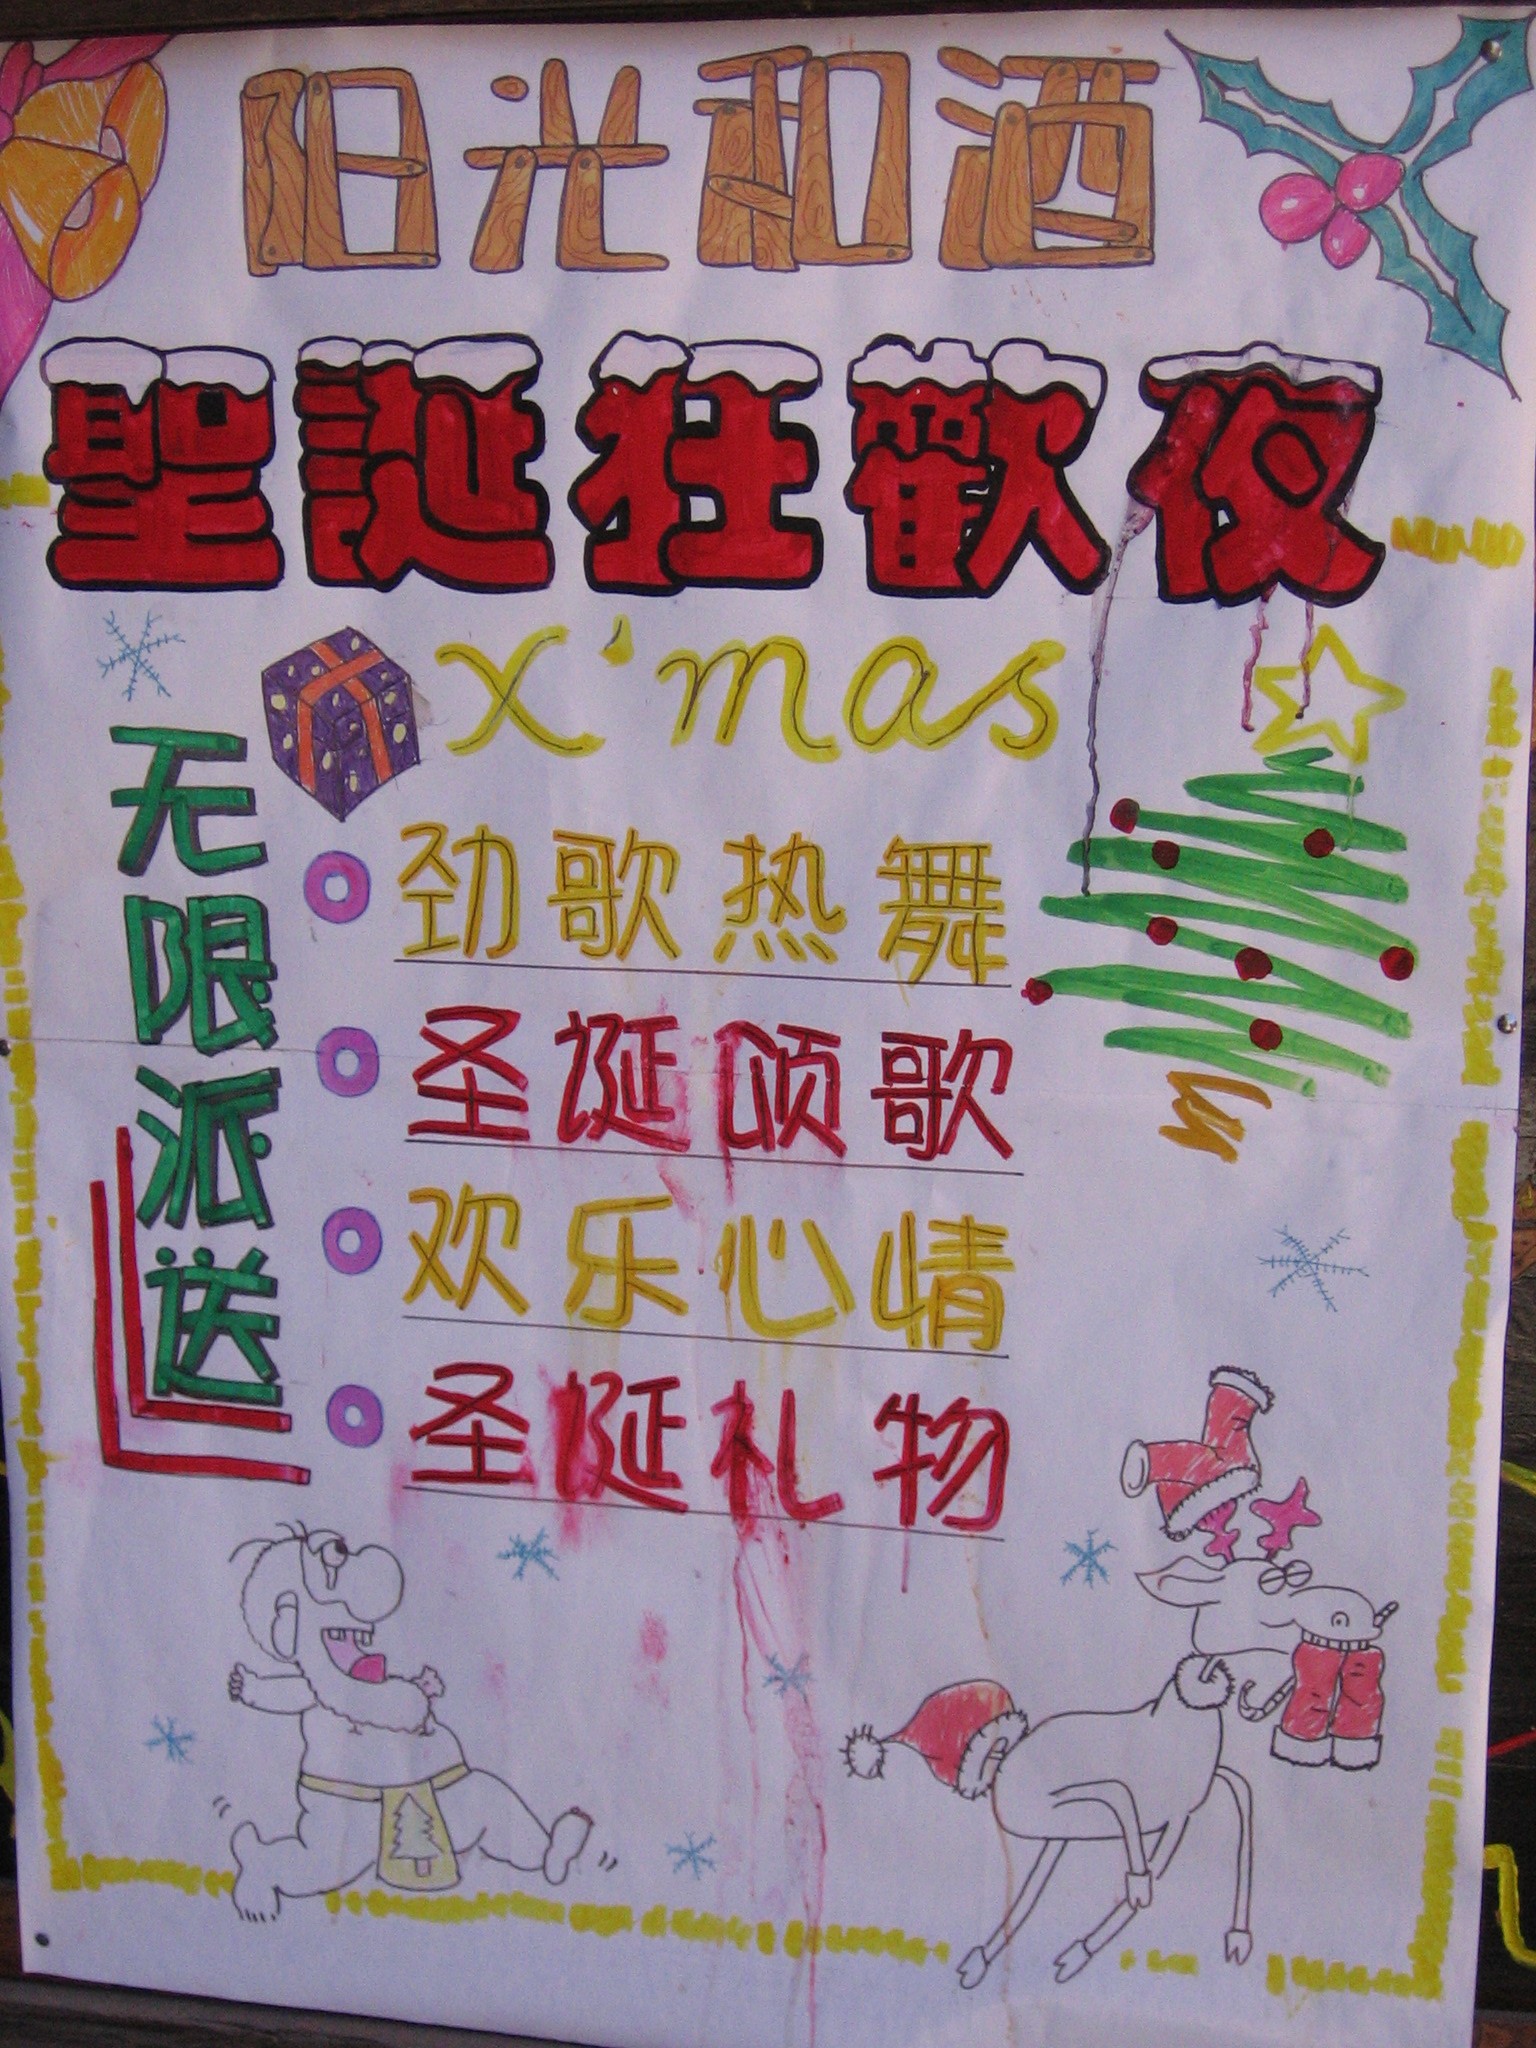 阳光和酒
聖誕狂歡夜
x'mas
无限派送
劲歌热舞
圣诞颂歌
欢乐心情
圣诞礼物